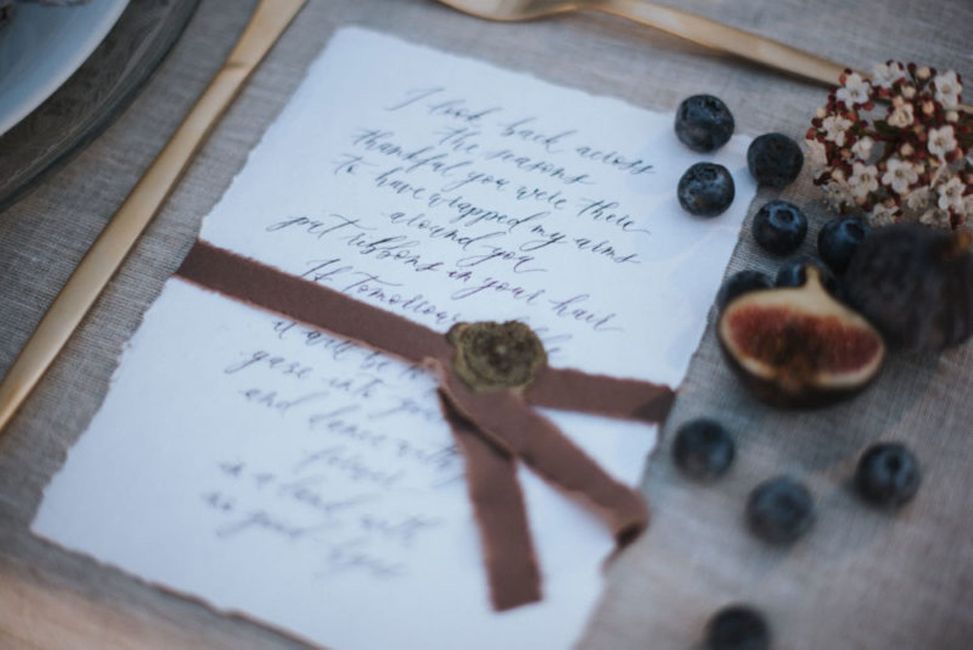 I look back across
the seasons
thankful you were there
to have wrapped my arms
around you
put ribbons in your hair
If tomorrow
it will be
gaze into
and dance with
in a land with
no good byes